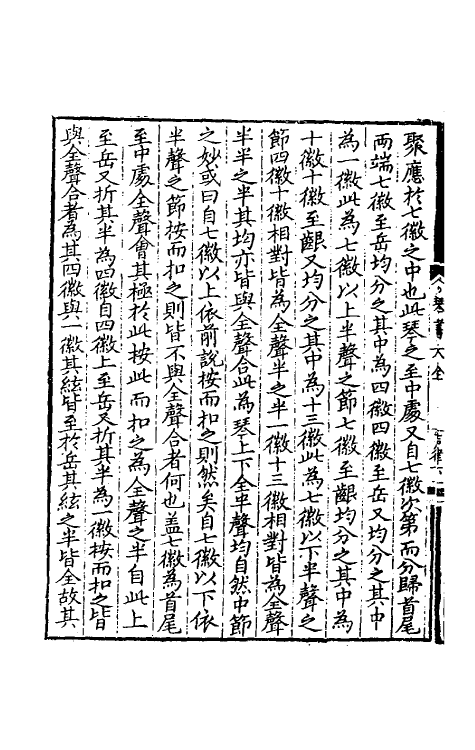 聚應於七徽之中也此琴之至中處又自七徽次第而分歸首尾
兩端七徽至岳均分之其中為四徽四徽至岳又均分之其中
為一徽此為七徽以上半聲之節七徽至齦均分之其中為
十徽十徽至齦又均分之其中為十三徽此為七徽以下半聲之
節四徽十徽相對皆為全聲半之半一徽十三徽相對皆為全聲
半半之半其均亦皆與全聲合此為琴上下全半聲均自然中節
之妙或曰自七徽以上依前說按而扣之則然矣自七徽以下依
半聲之節按而扣之則皆不與全聲合者何也盖七徽為首尾
至中處全聲會其極於此按此而扣之為全聲之半自此上
至岳又折其半為四徽自四徽上至岳又折其半為一徽按而扣之皆
與全聲合者為其四徽與一徽其絃皆至於岳其絃之半皆全故其
琴書大全